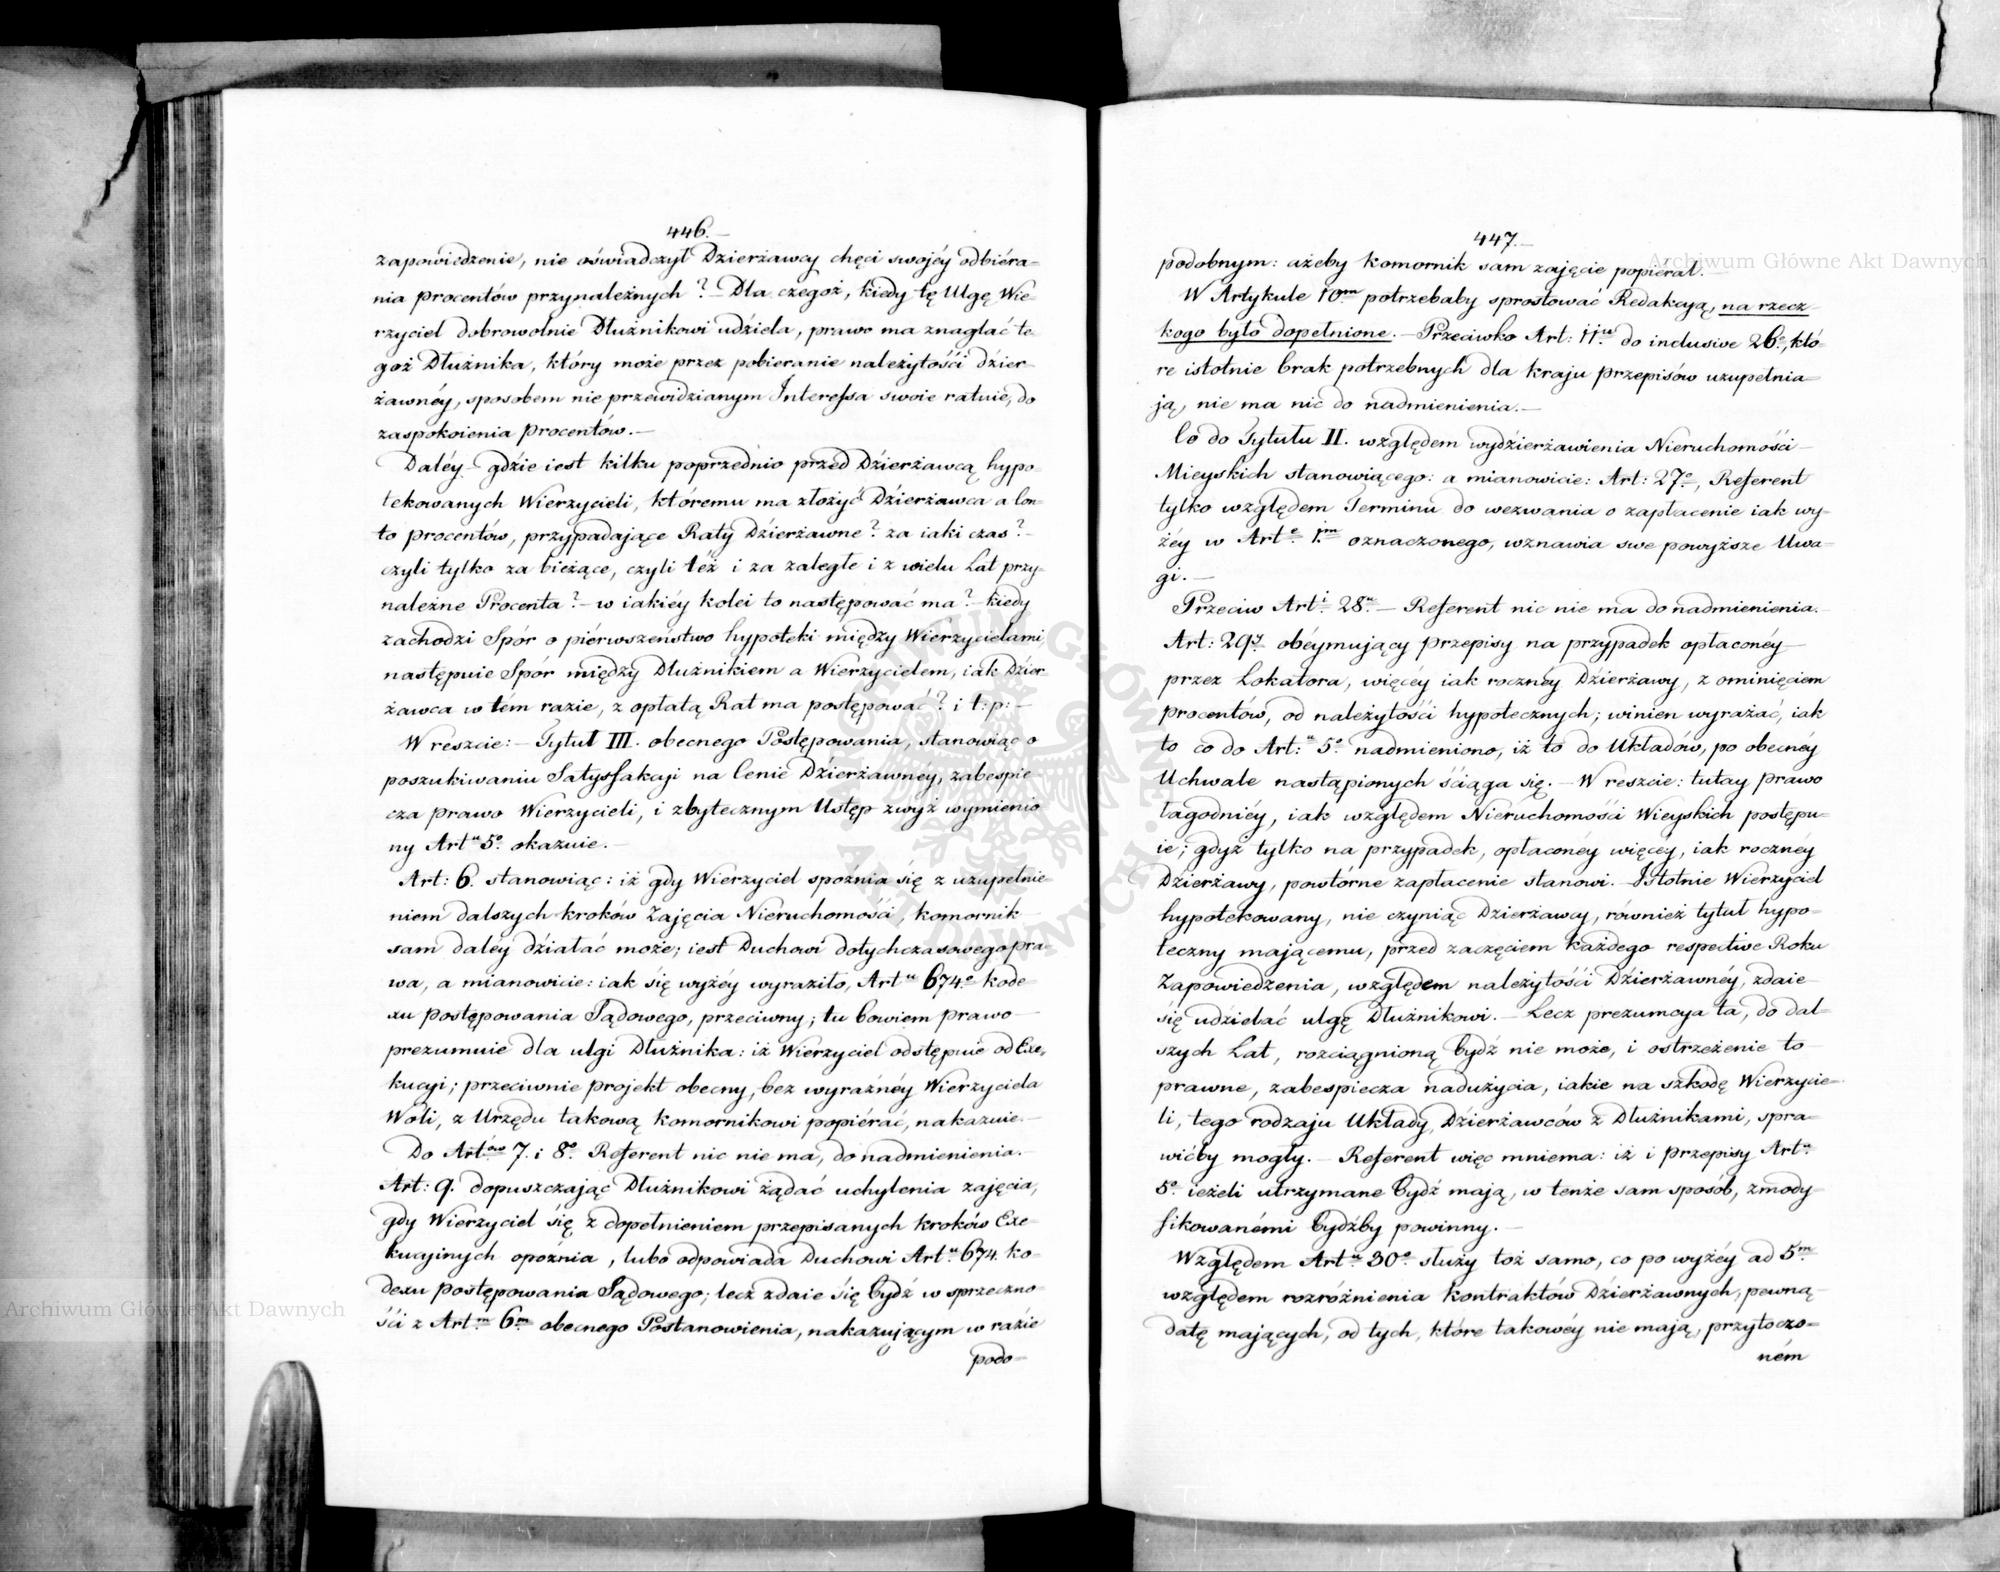 446.
zapowiedzenie, nie oświadczył Dzierżawcy chęci swojéy odbiéra=
nia procentów przynależnych? – Dla czegoż, kiedy tę Ulgę Wie=
rzyciel dobrowolnie Dłużnikowi udziela, prawo ma znaglać te=
goż Dłużnika, który może przez pobieranie należytości dzier=
żawnéy, sposobem nie przewidzianym Interessa swoie ratuie, do
zaspokoienia procentów. –
Daléy gdzie iest kilku poprzednio przed Dzierżawcą hypo=
tekowanych Wierzycieli, któremu ma złożyć Dzierżawca a Con=
to procentów, przypadające Raty Dzierżawne? za iaki czas? –
czyli tylko za bieżące, czyli téż i za zaległe i z wielu Lat przy=
należne Procenta? – w iakiéy kolei to następować ma? – kiedy
zachodzi Spór o piérwszeństwo hypoteki między Wierzycielami,
następuie Spór między Dłużnikiem a Wierzycielem, iak Dzier
żawca w tém razie, z opłatą Rat ma postępować? i t: p: –
W reszcie: – Tytuł III. obecnego Postępowania, stanowiąc o
poszukiwaniu Satysfakcji na Cenie Dzierżawnéy, zabespie=
cza prawo Wierzycieli, i zbytecznym Ustęp zwyż wymienio
ny Art.u 5o. okazuie. –
Art: 6. stanowiąc: iż gdy Wierzyciel spóźnia się z uzupełnie=
niem dalszych kroków Zajęcia Nieruchomości, komornik
sam daléy działać może; iest Duchowi dotychczasowego pra=
wa, a mianowicie: iak się wyżéy wyraziło, Art.u 674.o kode=
xu postępowania Sądowego, przeciwny; tu bowiem prawo
prezumuie dla ulgi Dłużnika: iż Wierzyciel odstępuie od Exe=
kucyi; przeciwnie projekt obecny, bez wyraźnéy Wierzyciela
Woli, z Urzędu takową komornikowi popiérać, nakazuie. –
Do Art.ów 7. i 8o. Referent nic nie ma, do nadmienienia. –
Art: 9. dopuszczając Dłużnikowi żądać uchylenia zajęcia,
gdy Wierzyciel się z dopełnieniem przepisanych kroków Exe=
kucyinych opóźnia, lubo odpowiada Duchowi Art.u 674. ko=
dexu postępowania Sądowego; lecz zdaie się bydź w sprzeczno=
ści z Art.m 6.m obecnego Postanowienia, nakazującym w razie
podo=
447.
podobnym: ażeby komornik sam zajęcie popierał. –
W Artykule 10.m potrzebaby sprostować Redakcyą, na rzecz
kogo było dopełnione. – Przeciwko Art: 11.u do inclusive 26o., któ=
re istotnie brak potrzebnych dla kraju przepisów uzupełnia=
ją, nie ma nic do nadmienienia. –
Co do Tytułu II. względem wydzierżawienia Nieruchomości
Mieyskich stanowiącego: a mianowicie: Art: 27o., Referent
tylko względem Terminu do wezwania o zapłacenie iak wy=
żéy w Art.e 1.m oznaczonego, wznawia swe powyższe Uwa=
gi. –
Przeciw Art.i 28.u – Referent nic nie ma do nadmienienia. –
Art: 29.y obéymujący przepisy na przypadek opłaconéy
przez Lokatora, więcéy iak rocznéy Dzierżawy, z ominięciem
procentow, od należytości hypotecznych; winien wyrażać, iak
to co do Art:u 5o. nadmieniono, iż to do Układów, po obecnéy
Uchwale nastąpionych ściąga się. – W reszcie: tutay prawo
łagodniéy, iak względem Nieruchomości Wieyskich postępu=
ie; gdyż tylko na przypadek, opłaconéy więcey, iak rocznéy
Dzierżawy, powtórne zapłacenie stanowi. – Istotnie Wierzyciel
hypotekowany, nie czyniąc Dzierżawcy, również tytuł hypo=
teczny mającemu, przed zaczęciem każdego respective Roku
Zapowiedzenia, względem należytości Dzierżawnéy, zdaie
się udzielać ulgę Dłużnikowi. – Lecz prezumcya ta, do dal=
szych Lat, rozciągnioną bydź nie może, i ostrzeżenie to
prawne, zabespiecza nadużycia, iakie na szkodę Wierzycie=
li, tego rodzaju Układy, Dzierżawców z Dłużnikami, spra=
wićby mogły. – Referent więc mniema: iż i przepisy Art.u
5o. ieżeli utrzymane bydź mają, w tenże sam sposób, zmody=
fikowanémi bydźby powinny. –
Względem Art.u 30o. służy toż samo, co po wyżéy ad 5.m
względem rozróżnienia Kontraktów Dzierżawnych, pewną
datę mających, od tych, które takowéy nie mają, przytoczo=
ném
Archiwum Główne Akt Dawnych
Archiwum Główne Akt Dawnych
ARCHIWUM GŁÓWNE AKT DAWNYCH